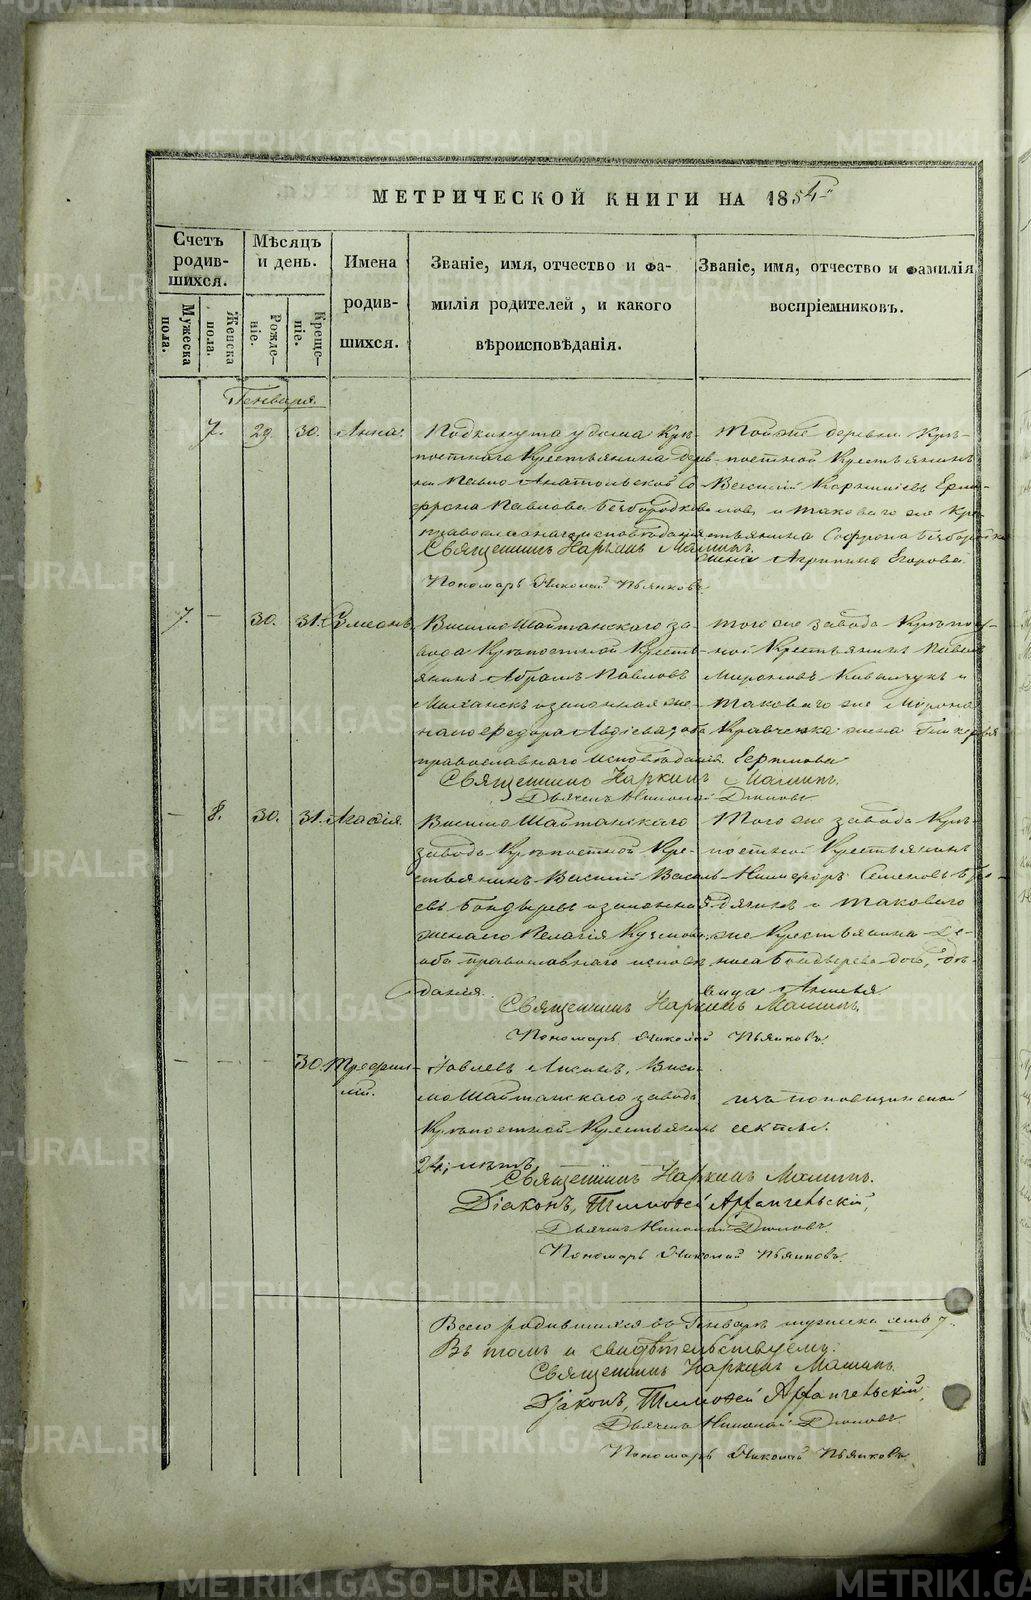 МЕТРИЧЕСКОЙ КНИГИ НА 1854
Счетъ родив-шихся.
Мужеска пола.
Женска пола.
Мѣсяцъ и день.
Рожде-ніе.
Креще-ніе.
Имена
родив-
шихся.
Званіе, имя, отчество и фа-
милія родителей, и какого
вѣроисповѣданія.
Званіе, имя, отчество и фамилія
воспріемниковъ.
Генваря
7. 29. 30. Анна.
Подкинута у дома Крѣ-
постнаго Крестьянина дерев-
ни
фрона Павлова Безбородкова
православнаго исповѣданія
Священникъ Наркисъ Маминъ.
Пономарь Николай Пьянковъ
Тойже деревни Крѣ-
постной Крестьянинъ
Василій Ермо-
ловъ и таковаго же Кре-
стьянина Софрона Безбородко
жена Агрипина Егорова.
7. – 30. 31. Симеонъ
Висимо Шайтанскаго за-
вода Крѣпостной Кресть-
янинъ Абрамъ Павловъ
и законная же-
на его Федора Авдіева оба
православнаго исповѣданія.
Священникъ Наркисъ Маминъ.
Дьячекъ Николай Дюковъ
того же завода Крѣпост-
ной Крестьянинъ Павелъ
Мироновъ Ковальчукъ и
таковаго же Мирона
Кравченка жена Гликерья
– 8. 30. 31. Агафія.
Висимо Шайтанскаго
завода Крѣпостной Кре-
стьянинъ Василій Василь-
евъ Бондыревъ и законная
жена его Пелагія Кузмова,
оба православнаго исповѣ-
данія.
Священникъ Наркисъ Маминъ.
Пономарь Николай Пьянковъ.
Того же завода Крѣ-
постной Крестьянинъ
Никифоръ Семеновъ
и таковаго
же Крестьянина Де-
ниса Бондырева дочь, дѣ-
вица Анисья
– – – 30. Трефил-
лій.
Іовлевъ Висим
мо Шайтанскаго завода
Крѣпостной Крестьянинъ
24, лѣтъ
изъ поповщинской
секты.
Священникъ Наркисъ Маминъ.
Діаконъ, Тимофей Архангельскій,
Дьячекъ Николай Дюковъ.
Пономарь Николай Пьянковъ.
Всего родившихся въ Генварѣ мужеска семь 7.
Въ томъ и свидѣтельствуемъ:
Священникъ Наркисъ Маминъ.
Діаконъ, Тимофей Архангельскій,
Дьячекъ Николай Дюковъ.
Пономарь Николай Пьянковъ.
METRIKI.GASO-URAL.RU